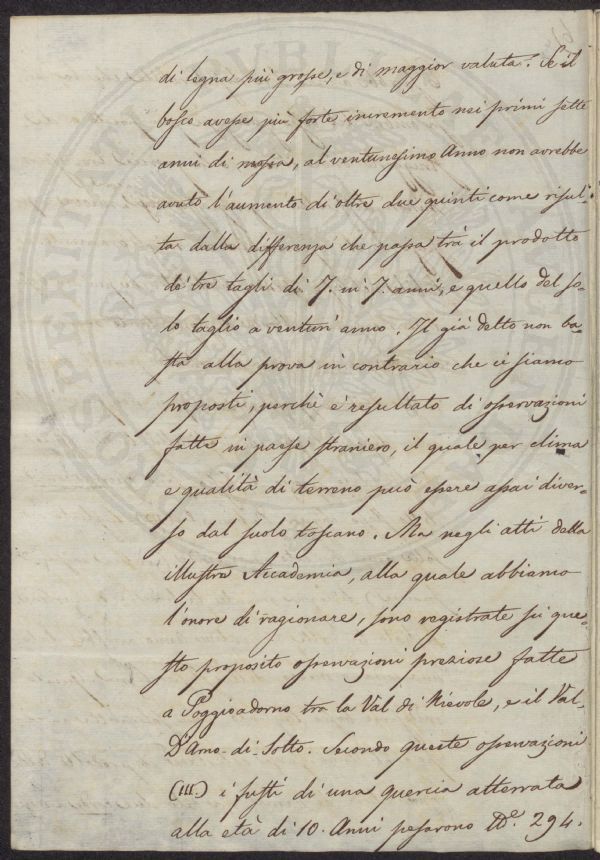 di legna più grosse, e di maggior valuta. Se il
bosco avesse più forte incremento nei primi sette
anni di messa, al ventunesimo Anno non avrebbe
avuto l'aumento di oltre due quinti come risul-
ta dalla differenza che passa trà il prodotto
de' tre tagli di 7. in 7. anni, e quello del so-
lo taglio a ventun' anno. Il già detto non ba-
sta alla prova in contrario che ci siamo
proposti, perchè è resultato di osservazioni
fatte in paese straniero, il quale per clima
e qualità di terreno può essere assai diver-
so dal suolo toscano. Ma negli atti della
illustre Accademia, alla quale abbiamo
l'onore di ragionare, sono registrate su que-
sto proposito osservazioni preziose fatte
a Poggioadorno tra la Val di Nievole, e il Val-
D'Arno di Sotto. Secondo queste osservazioni
(III.) i fusti di una quercia atterrata
alla età di 10. Anni pesarono lb.e 294.